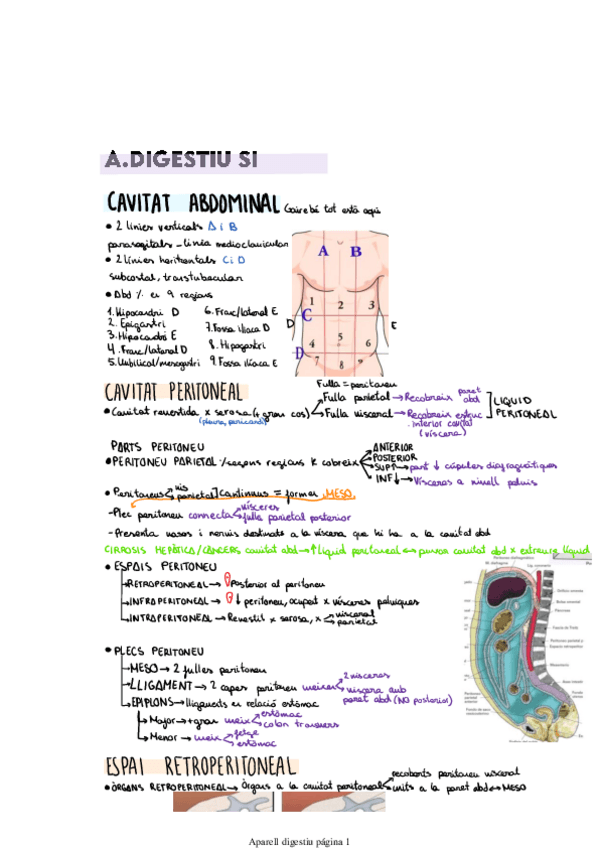 A.DIGESTIU SI
CAVITAT ABDOMINAL Gairebé tot està aquí
• 2 línies verticals A i B
parasagitals - línia medioclavicular
• 2 línies horitzontals C i D
subcostal, transtubercular
• Abd % en 9 regions
1. Hipocondri D
2. Epigastri
3. Hipocondri E
4. Franc/lateral D
5. Umbilical/mesogastri
6. Franc/lateral E
7. Fossa ilíaca D
8. Hipogastri
9. Fossa ilíaca E
A B
1 2 3
C
D E
4 5 6
D
7 8 9
CAVITAT PERITONEAL
Fulla = peritoneu
• Cavitat revestida x serosa (+ gran cos)
(pleura, pericardi)
Fulla parietal → Recobreix paret abd
Fulla visceral → Recobreix estruc. interior cavitat (víscera)
LIQUID PERITONEAL
PARTS PERITONEU
• PERITONEU PARIETAL % segons regions k cobreix
ANTERIOR
POSTERIOR
SUP↑ → part ↓ cúpules diafragmàtiques
INF↓ → Vísceras a nivell pelvis
• Peritoneus vis parietal] continuus = formar MESO
- Plec peritoneu connecta vísceres
fulla parietal posterior
- Presenta vasos i nervis destinats a la víscera que hi ha a la cavitat abd
CIRROSIS HEPÀTICA/CÀNCERS cavitat abd → ↑ líquid peritoneal ↔ punxar cavitat abd x extreure líquid
• ESPAIS PERITONEU
→ RETROPERITONEAL → Posterior al peritoneu
→ INFRAPERITONEAL → ↓ peritoneu, ocupat x vísceres pelviques
→ INTRAPERITONEAL → Revestit x serosa, x visceral
parietal
• PLECS PERITONEU
→ MESO → 2 fulles peritoneu
→ LLIGAMENT → 2 capes peritoneu uneixen 2 vísceras
víscera amb paret abd (NO posterior)
→ EPIPLONS → lligaments en relació estómac
→ Major → + gran uneix estómac
colon transvers
→ Menor → uneix fetge
estómac
ESPAI RETROPERITONEAL
• ÒRGANS RETROPERITONEAL → Òrgans a la cavitat peritoneal
recoberts peritoneu visceral
units a la paret abd → MESO
Aparell digestiu página 1